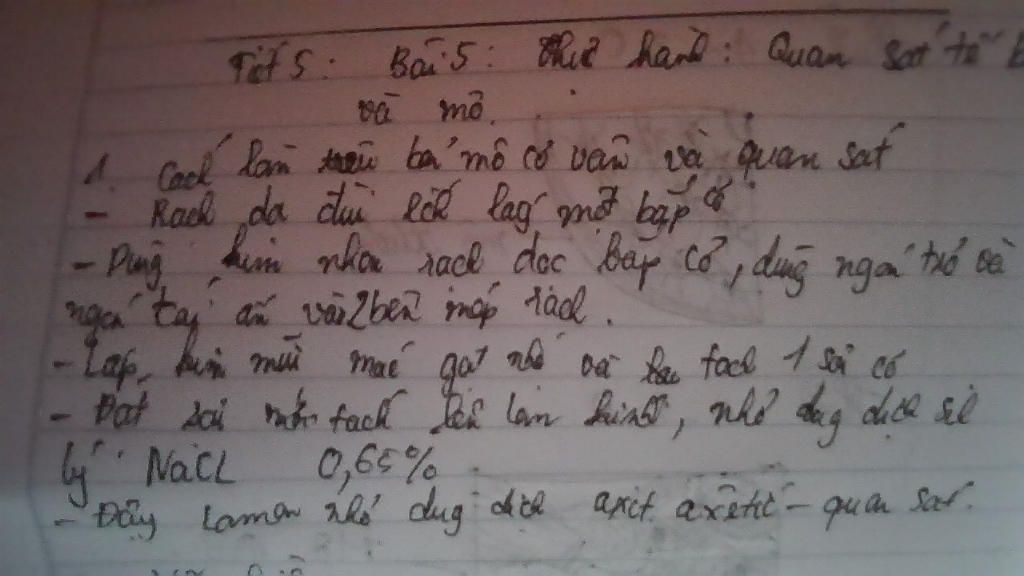 Tiết 5: Bài 5: Thực hành: Quan sát tế b
và mô.
1. Cách làm tiêu bản mô cơ vân và quan sát
- Rạch da đùi ếch lấy một bắp cơ
- Dùng kim nhọn rạch dọc bắp cơ, dùng ngón trỏ và
ngón tay ấn vào 2 bên mép rạch.
- Lấy kim mũi mác gạt nhỏ và tách 1 sợi cơ
- Đặt sợi mới tách lên lam kính, nhỏ dung dịch si
lý NaCL 0,65%.
- Đậy lamen nhỏ dung dịch axit axêtic - quan sát.